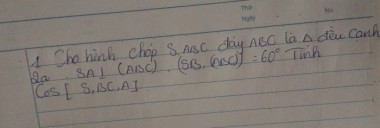 Thứ
Ngày
No
1 Cho hình chóp S.ABC đáy ABC là Δ đều cạnh
2a . SA⊥ (ABC) . (SB, (ABC)) = 60° Tính
Cos [ S, BC, A]